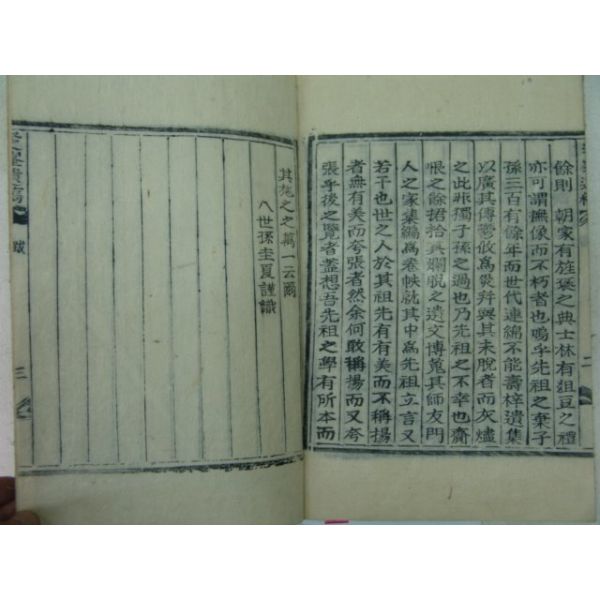 餘則 朝家有旌褒之典士林有俎豆之禮
亦可謂無像而不朽者也嗚乎先祖之棄子
孫三百有餘年而世代連綿不能壽梓遺集
以廣其傳鬱攸爲災幷與其未脫者而灰燼
之此非獨子孫之過也乃先祖之不幸也齎
恨之餘捃拾其爛脫之遺文博蒐其師友門
人之家集編爲卷帙就其中爲先祖立言又
若干也世之人於其祖先有有美而不稱揚
者無有美而夸張者然余何敢稱揚而又夸
張乎後之覽者盖想吾先祖之學有所本而
其施之之萬一云爾
八世孫圭夏謹識
遺稿 跋 三
二